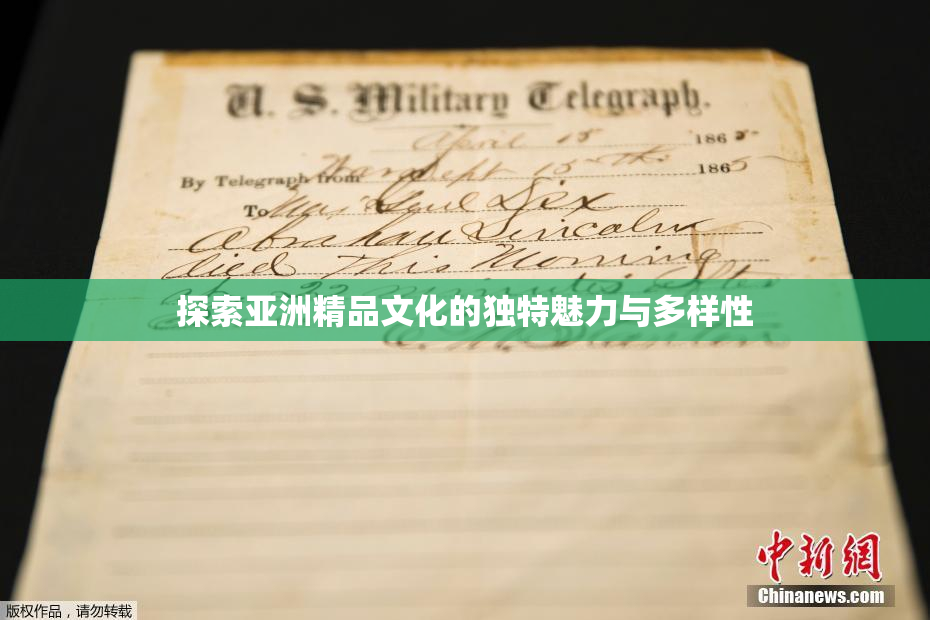 U. S. Military Telegraph.
April 15 1865
By Telegraph from War Dept 15th 1865
To Maj Genl Dix
Abraham Lincoln
died This Morning
at 22 minutes after
探索亚洲精品文化的独特魅力与多样性
E. M. Stanton
中新网
Chinanews.com
版权作品，请勿转载